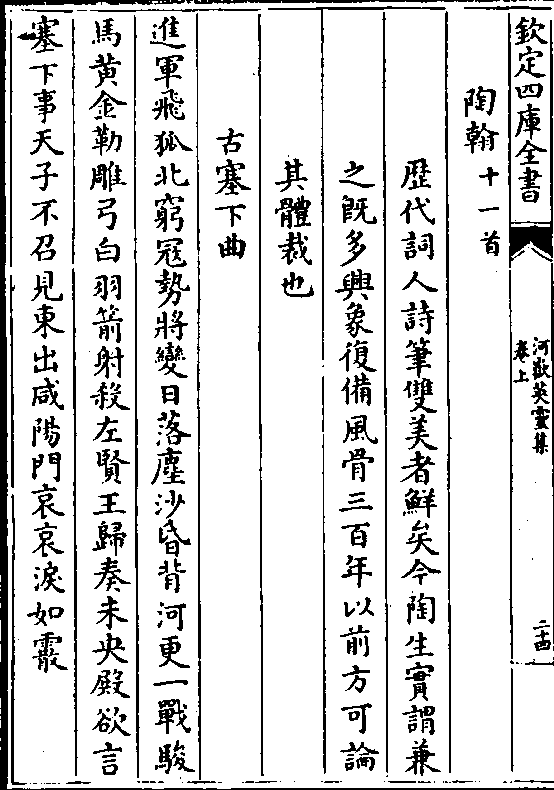 欽定四庫全書
河嶽英靈集
卷上
二十四
陶翰十一首
歴代詞人詩筆雙美者鮮矣今陶生實謂兼
之旣多興象復備風骨三百年以前方可論
其體裁也
古塞下曲
進軍飛狐北窮冦勢將變日落塵沙昏背河更一戰駿
馬黄金勒雕弓白羽箭射殺左賢王歸奏未央殿欲言
塞下事天子不召見東出咸陽門哀哀淚如霰